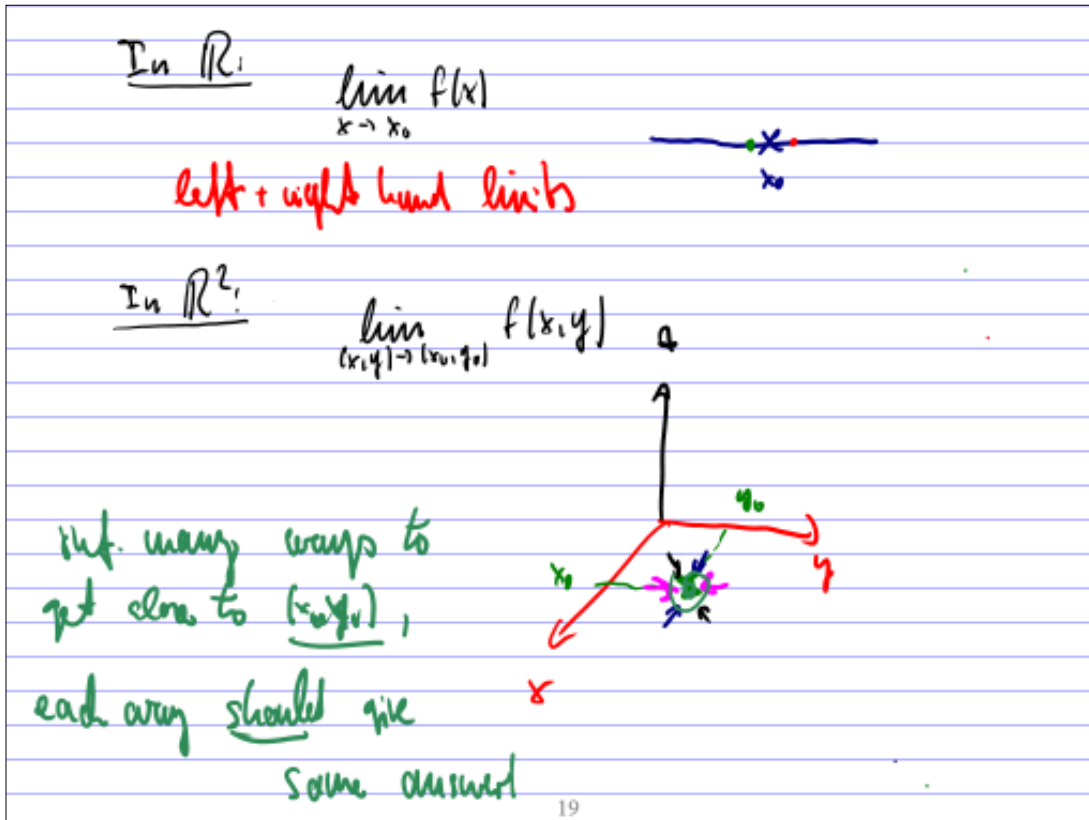 In ℝ:
lim f(x)
x → x₀
left + right hand limits
x₀
In ℝ²:
lim f(x,y)
(x,y) → (x₀,y₀)
y₀
x₀
y
x
inf. many ways to
get close to (x₀,y₀),
each way should give
same answer
19